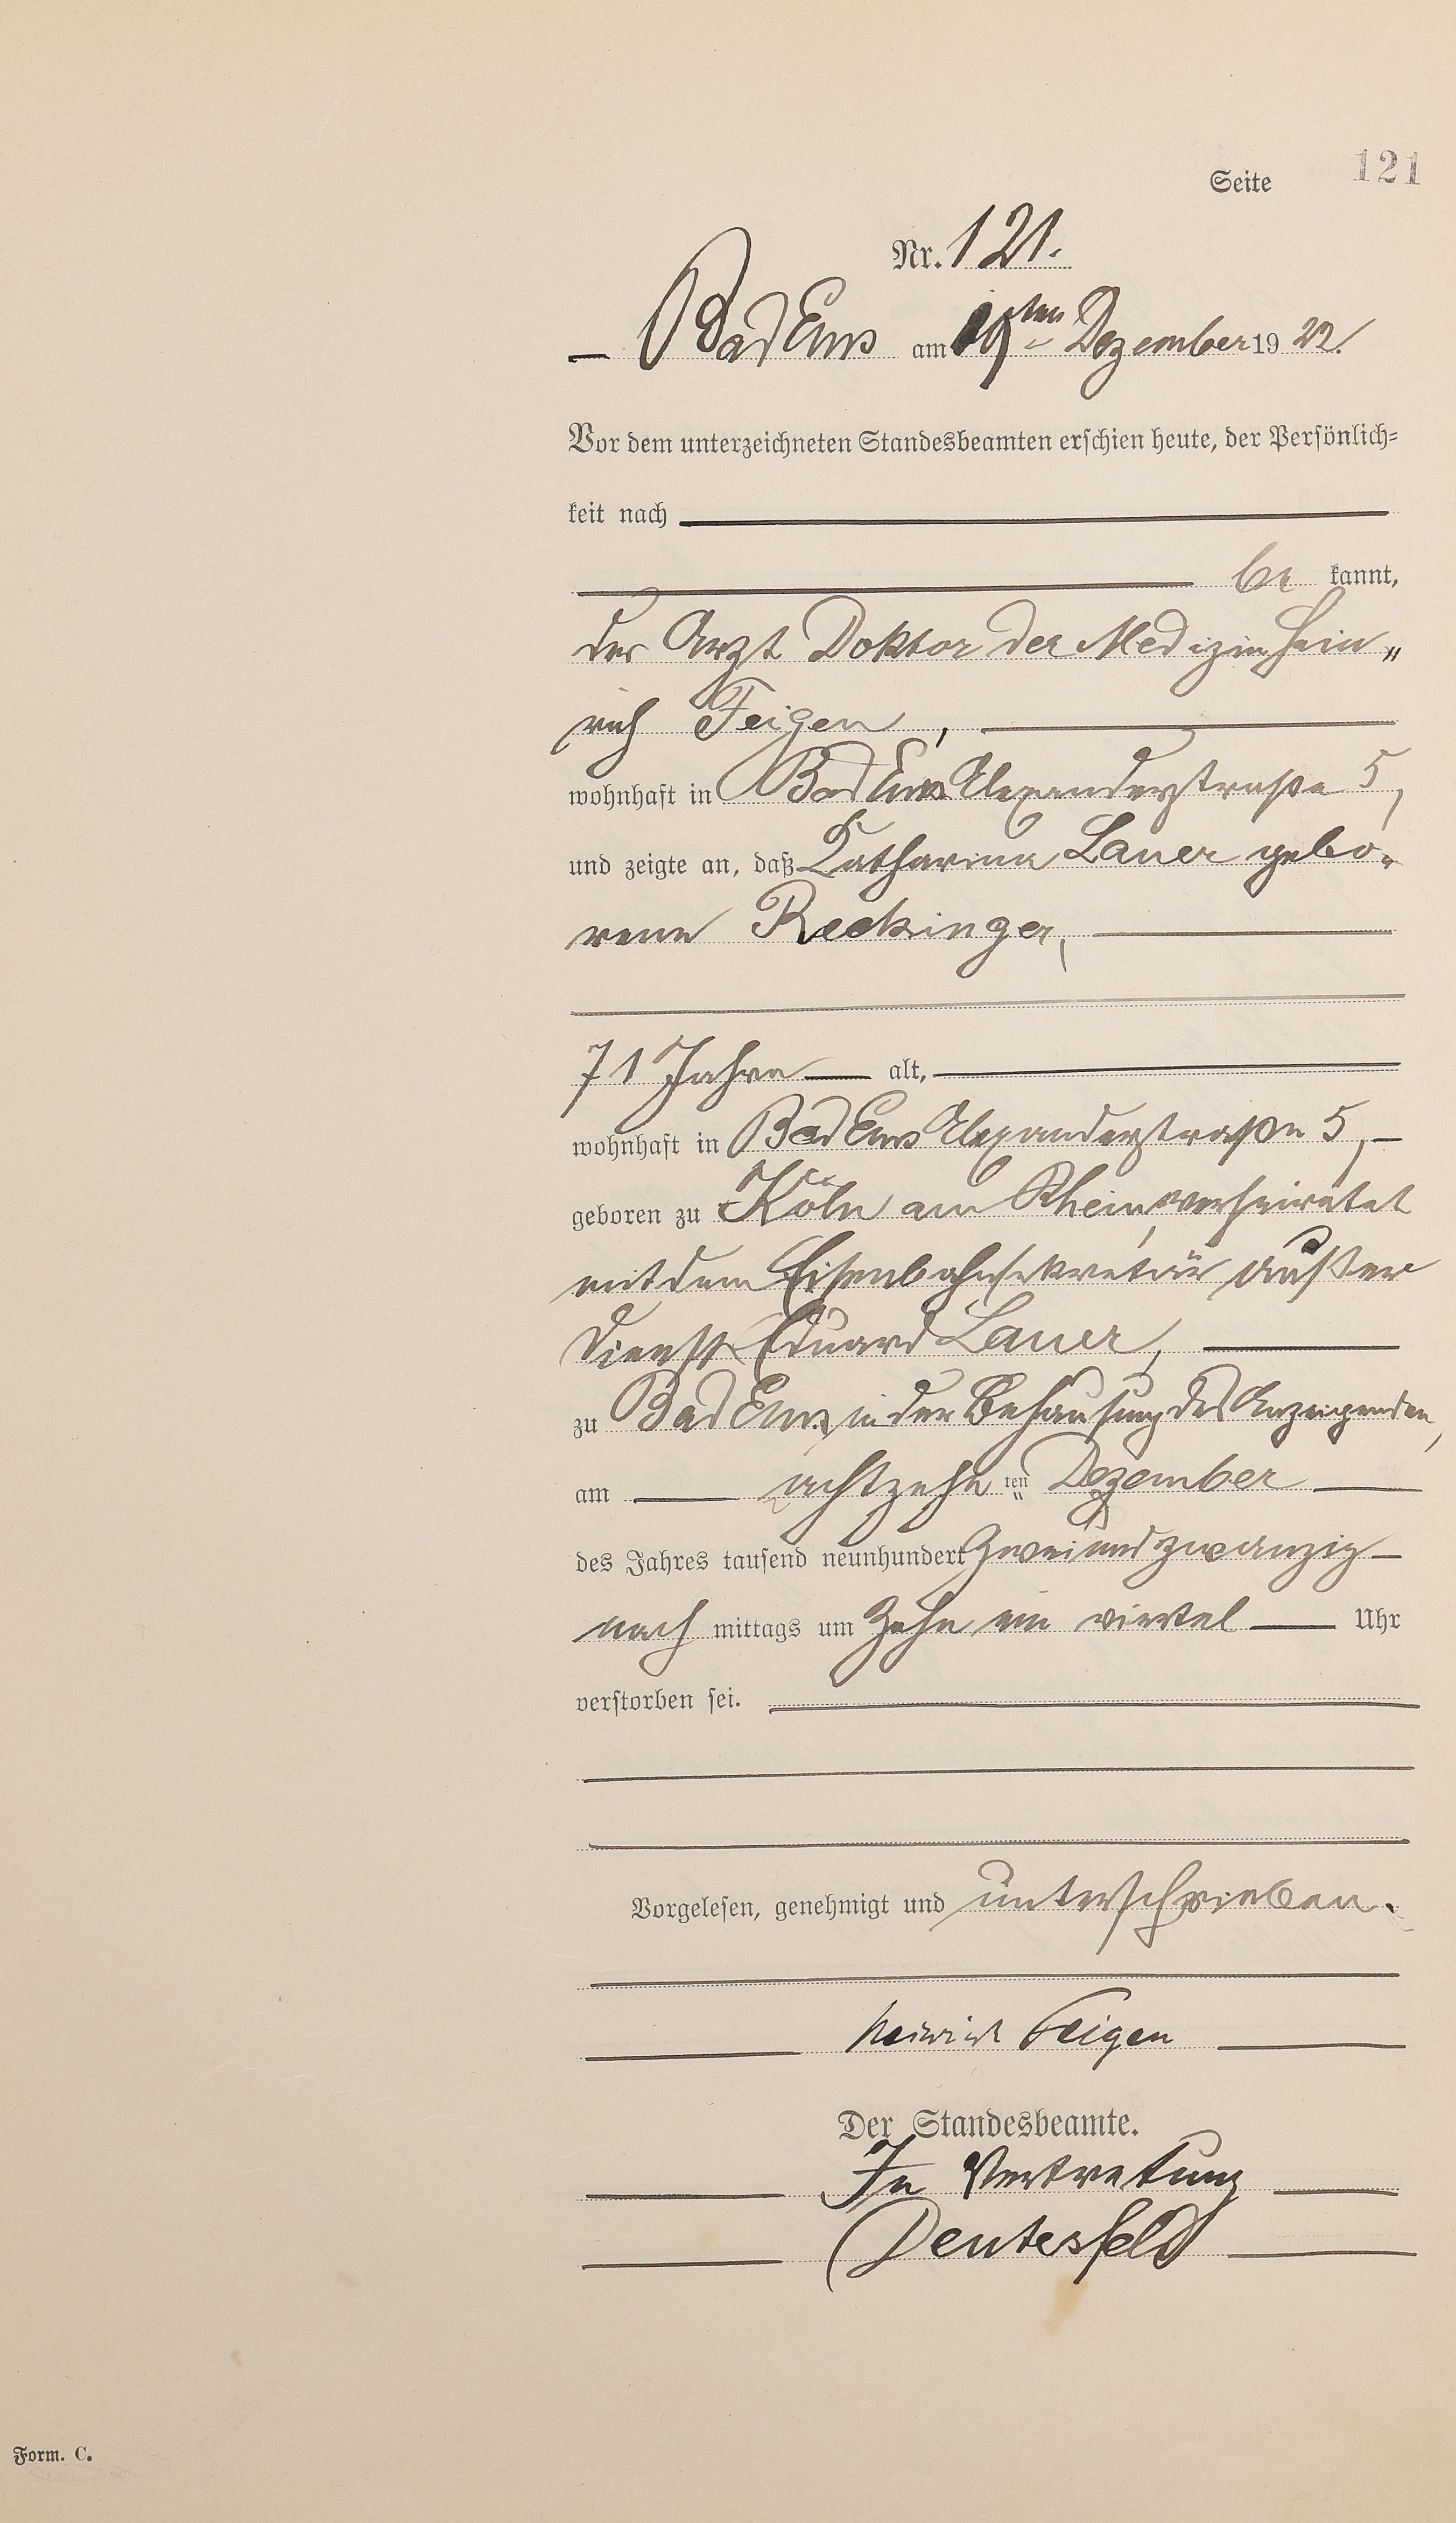 Seite 121
Nr. 121.
Bad Ems am 19ten Dezember 1922.
Vor dem unterzeichneten Standesbeamten erschien heute, der Persönlich=
keit nach
be kannt,
der Arzt Doktor der Medizin Hein„
rich Feigen,
wohnhaft in Bad Ems Alexanderstraße 5,
und zeigte an, daß Katharina Lauer gebo„
rene Reckinger,
71 Jahre alt,
wohnhaft in Bad Ems Alexanderstraße 5,
geboren zu Köln am Rhein, verheiratet
mit dem Eisenbahnsekretär außer
Dienst Eduard Lauer,
zu Bad Ems, in der Behausung des Anzeigenden,
am achtzehn ten Dezember
des Jahres tausend neunhundert zwei und zwanzig
nach mittags um zehn ein viertel Uhr
verstorben sei.
Vorgelesen, genehmigt und unterschrieben.
Heinrich Feigen
Der Standesbeamte.
In Vertretung
Deutesfeld
Form. C.